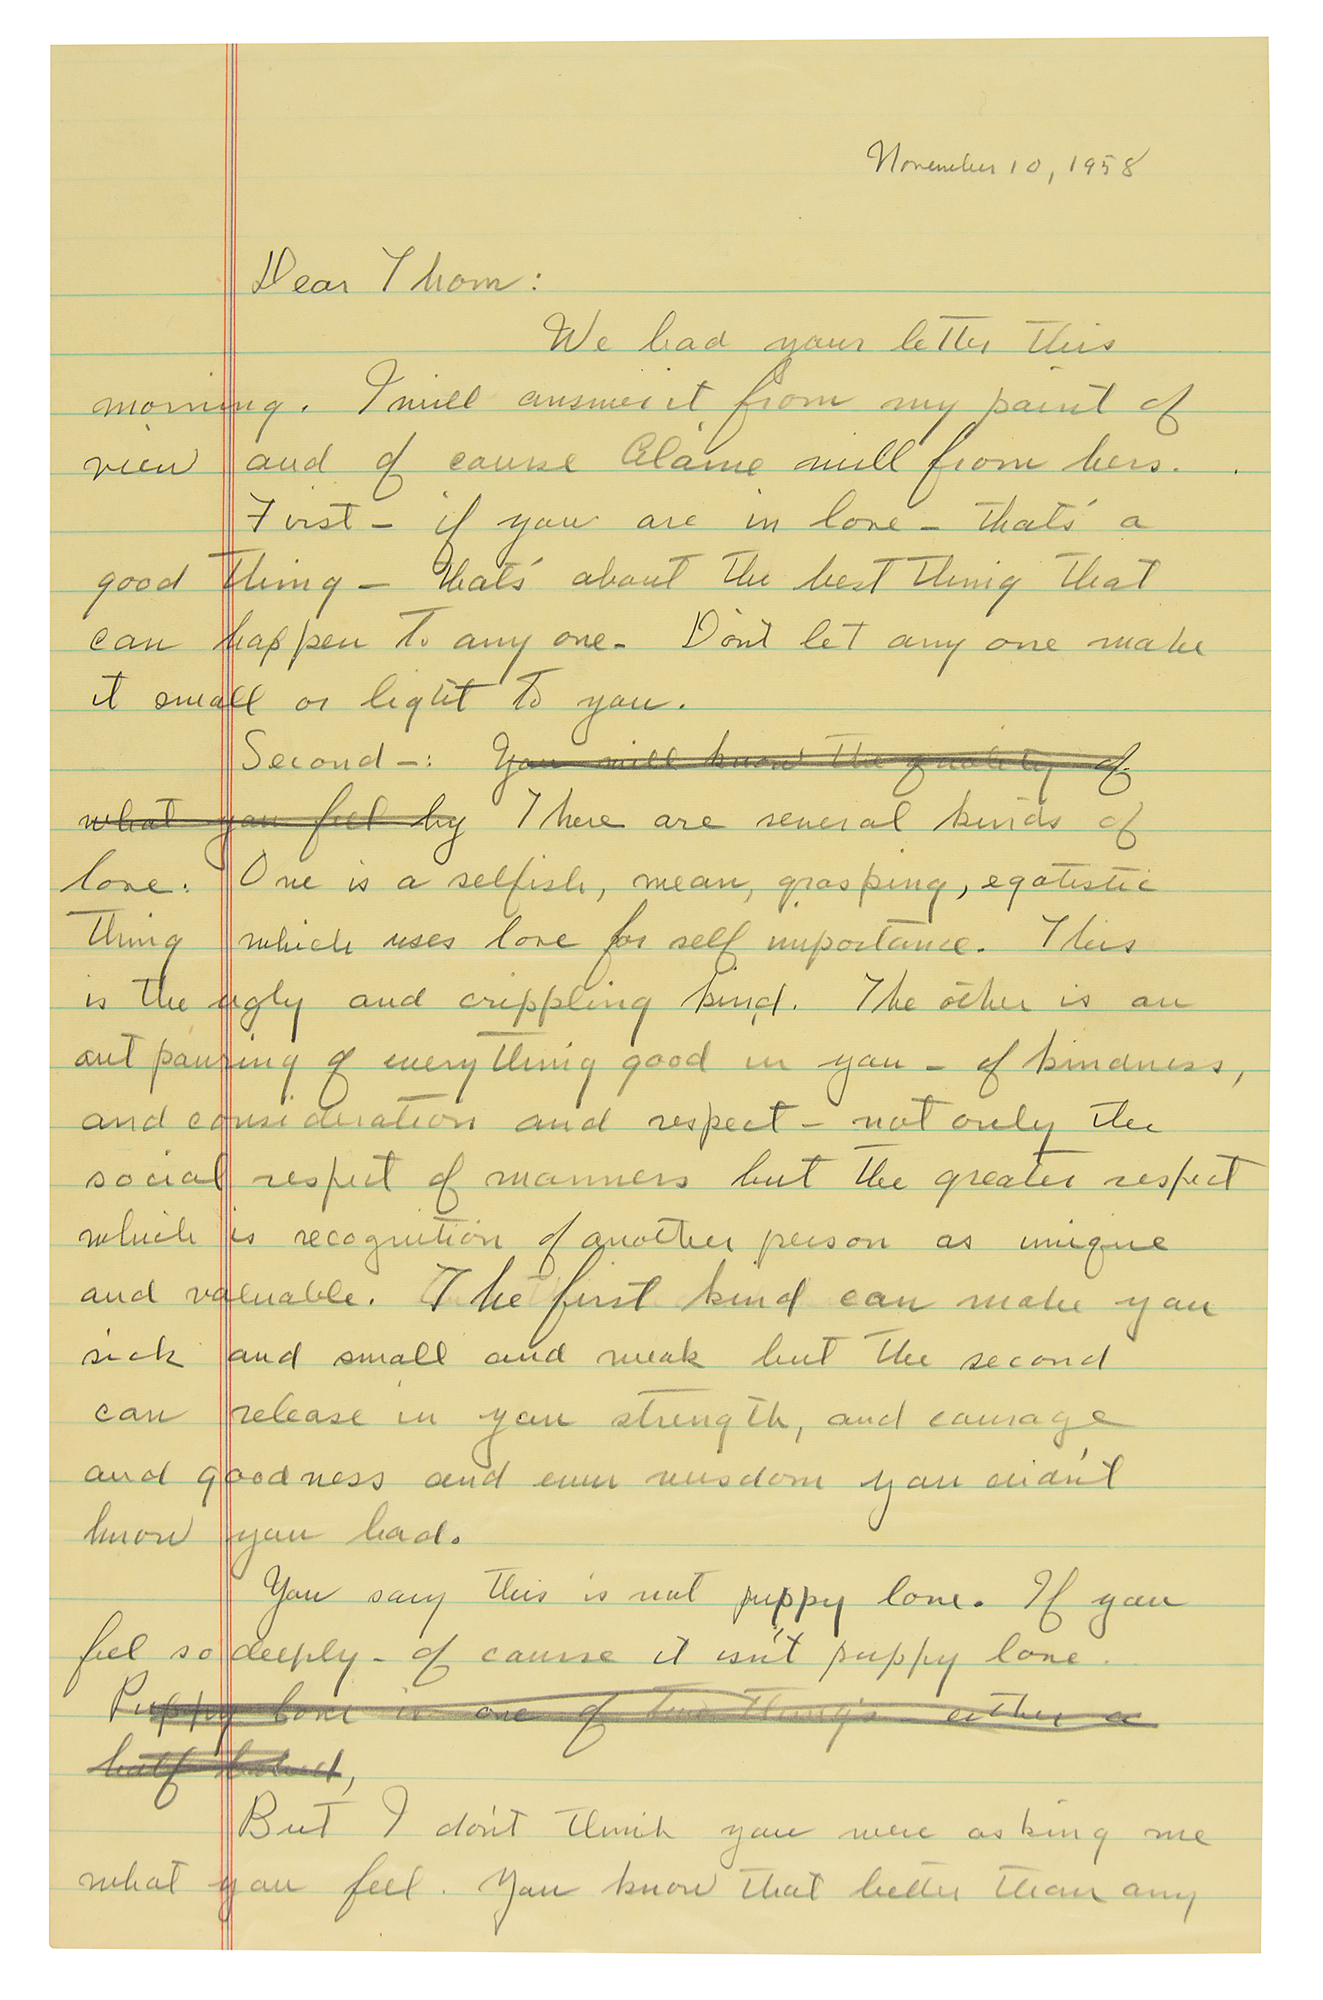 November 10, 1958
Dear Thom:
We had your letter this
morning. I will answer it from my point of
view and of course Elaine will from hers.
First — if you are in love — that's a
good thing — that's about the best thing that
can happen to any one. Don't let any one make
it small or light to you.
Second —: You will know the quality of
what you feel by There are several kinds of
love. One is a selfish, mean, grasping, egotistic
thing which uses love for self importance. This
is the ugly and crippling kind. The other is an
out pouring of everything good in you — of kindness,
and consideration and respect — not only the
social respect of manners but the greater respect
which is recognition of another person as unique
and valuable. The first kind can make you
sick and small and weak but the second
can release in you strength, and courage
and goodness and even wisdom you didn't
know you had.
You say this is not puppy love. If you
feel so deeply — of course it isn't puppy love.
Puppy love is one of two things — either a
half
But I don't think you were asking me
what you feel. You know that better than any